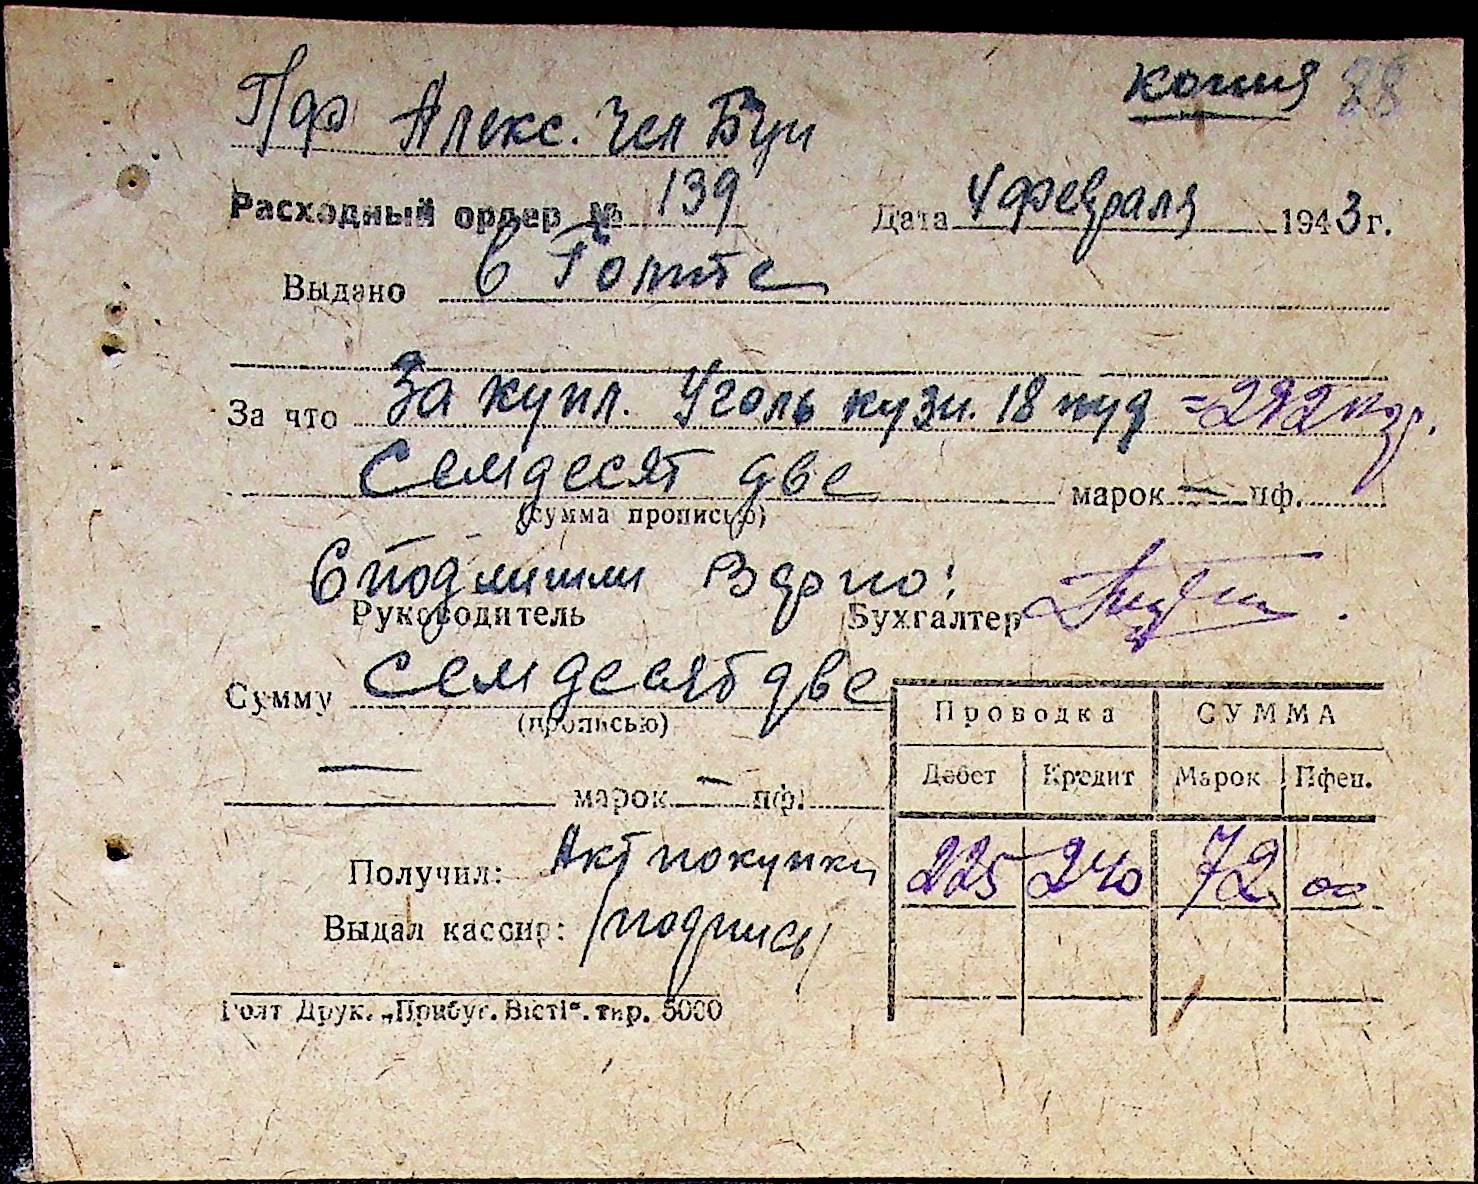 копия 88
Пдф Алекс. Чел Буи
Расходный ордер № 139 Дата 4 февраля 1943 г.
Выдано в Гопте
За что За купл. Уголь кузн. 18 пуд = 292 кгр.
Семдесят две марок — пф.
(сумма прописью)
С подлишли Верно!
Руководитель Бухгалтер
Сумму семдесят две
(прописью)
Проводка СУММА
— марок — пф.
Дебет Кредит Марок Пфен.
Получил: Акт покупки
225 240 72 00
Выдал кассир: /подпись/
Голт Друк. „Прибуг. Вісті". тир. 5000